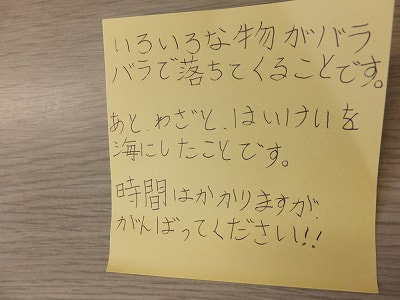 いろいろな物がバラ
バラで落ちてくることです。
あと、わざと、はいけいを
海にしたことです。
時間はかかりますが、
がんばってください!!